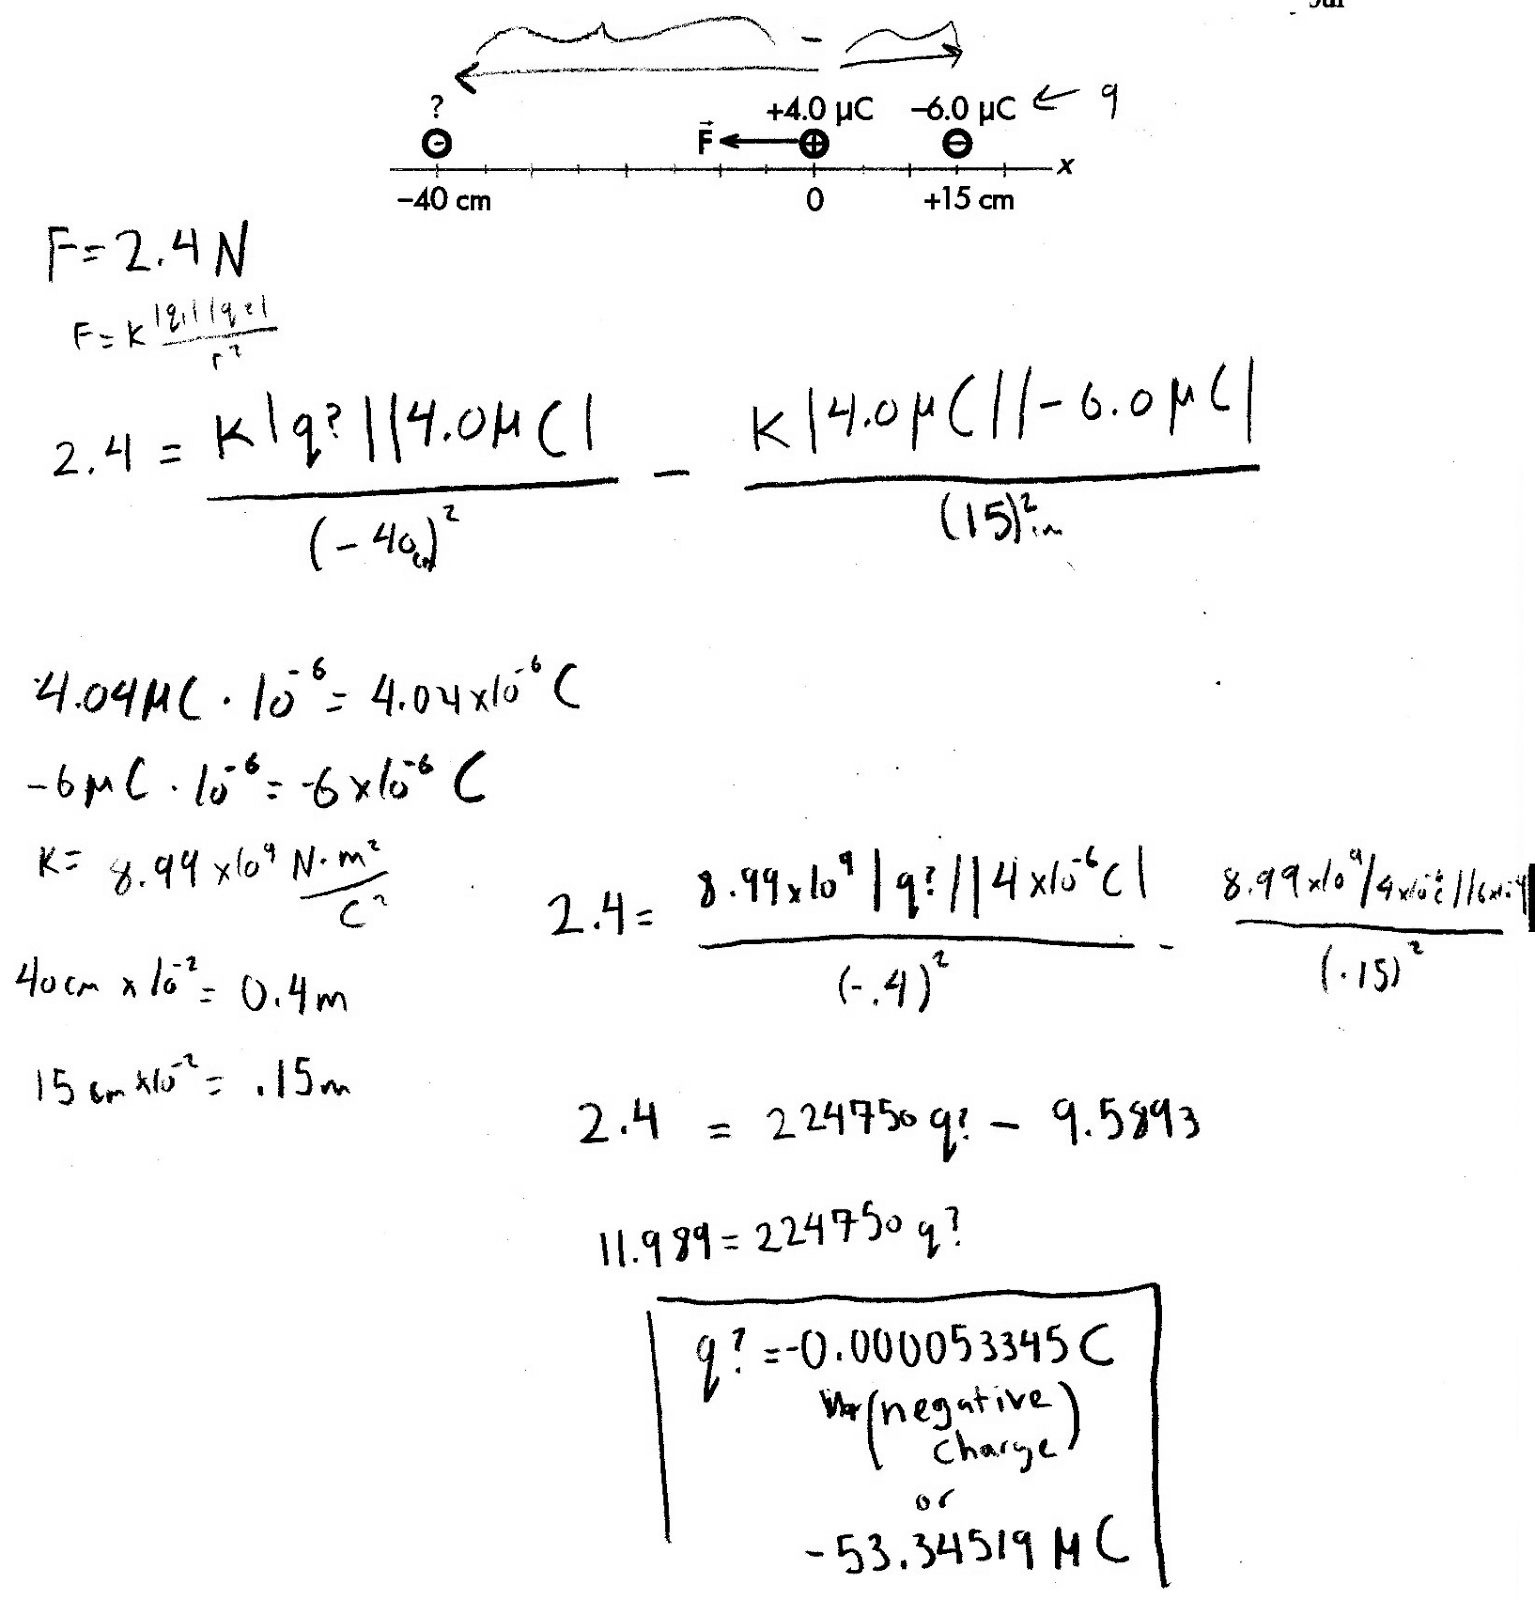 ?
+4.0 µC
−6.0 µC ← q
F
x
−40 cm
0
+15 cm
F = 2.4 N
F = K |q₁||q₂| / r²
2.4 = K|q?||4.0µC| / (-40cm)² − K|4.0µC||-6.0µC| / (15)² cm
4.04µC · 10⁻⁶ = 4.04x10⁻⁶ C
-6µC · 10⁻⁶ = -6x10⁻⁶ C
K = 8.99x10⁹ N·m² / C²
40cm x 10⁻² = 0.4m
15cm x10⁻² = .15m
2.4 = 8.99x10⁹ |q?||4x10⁻⁶C| / (-.4)² − 8.99x10⁹ |4x10⁻⁶C| / (.15)²
2.4 = 224750q? − 9.5893
11.989 = 224750 q?
q? = -0.000053345 C
(negative
charge)
or
-53.34519 µC